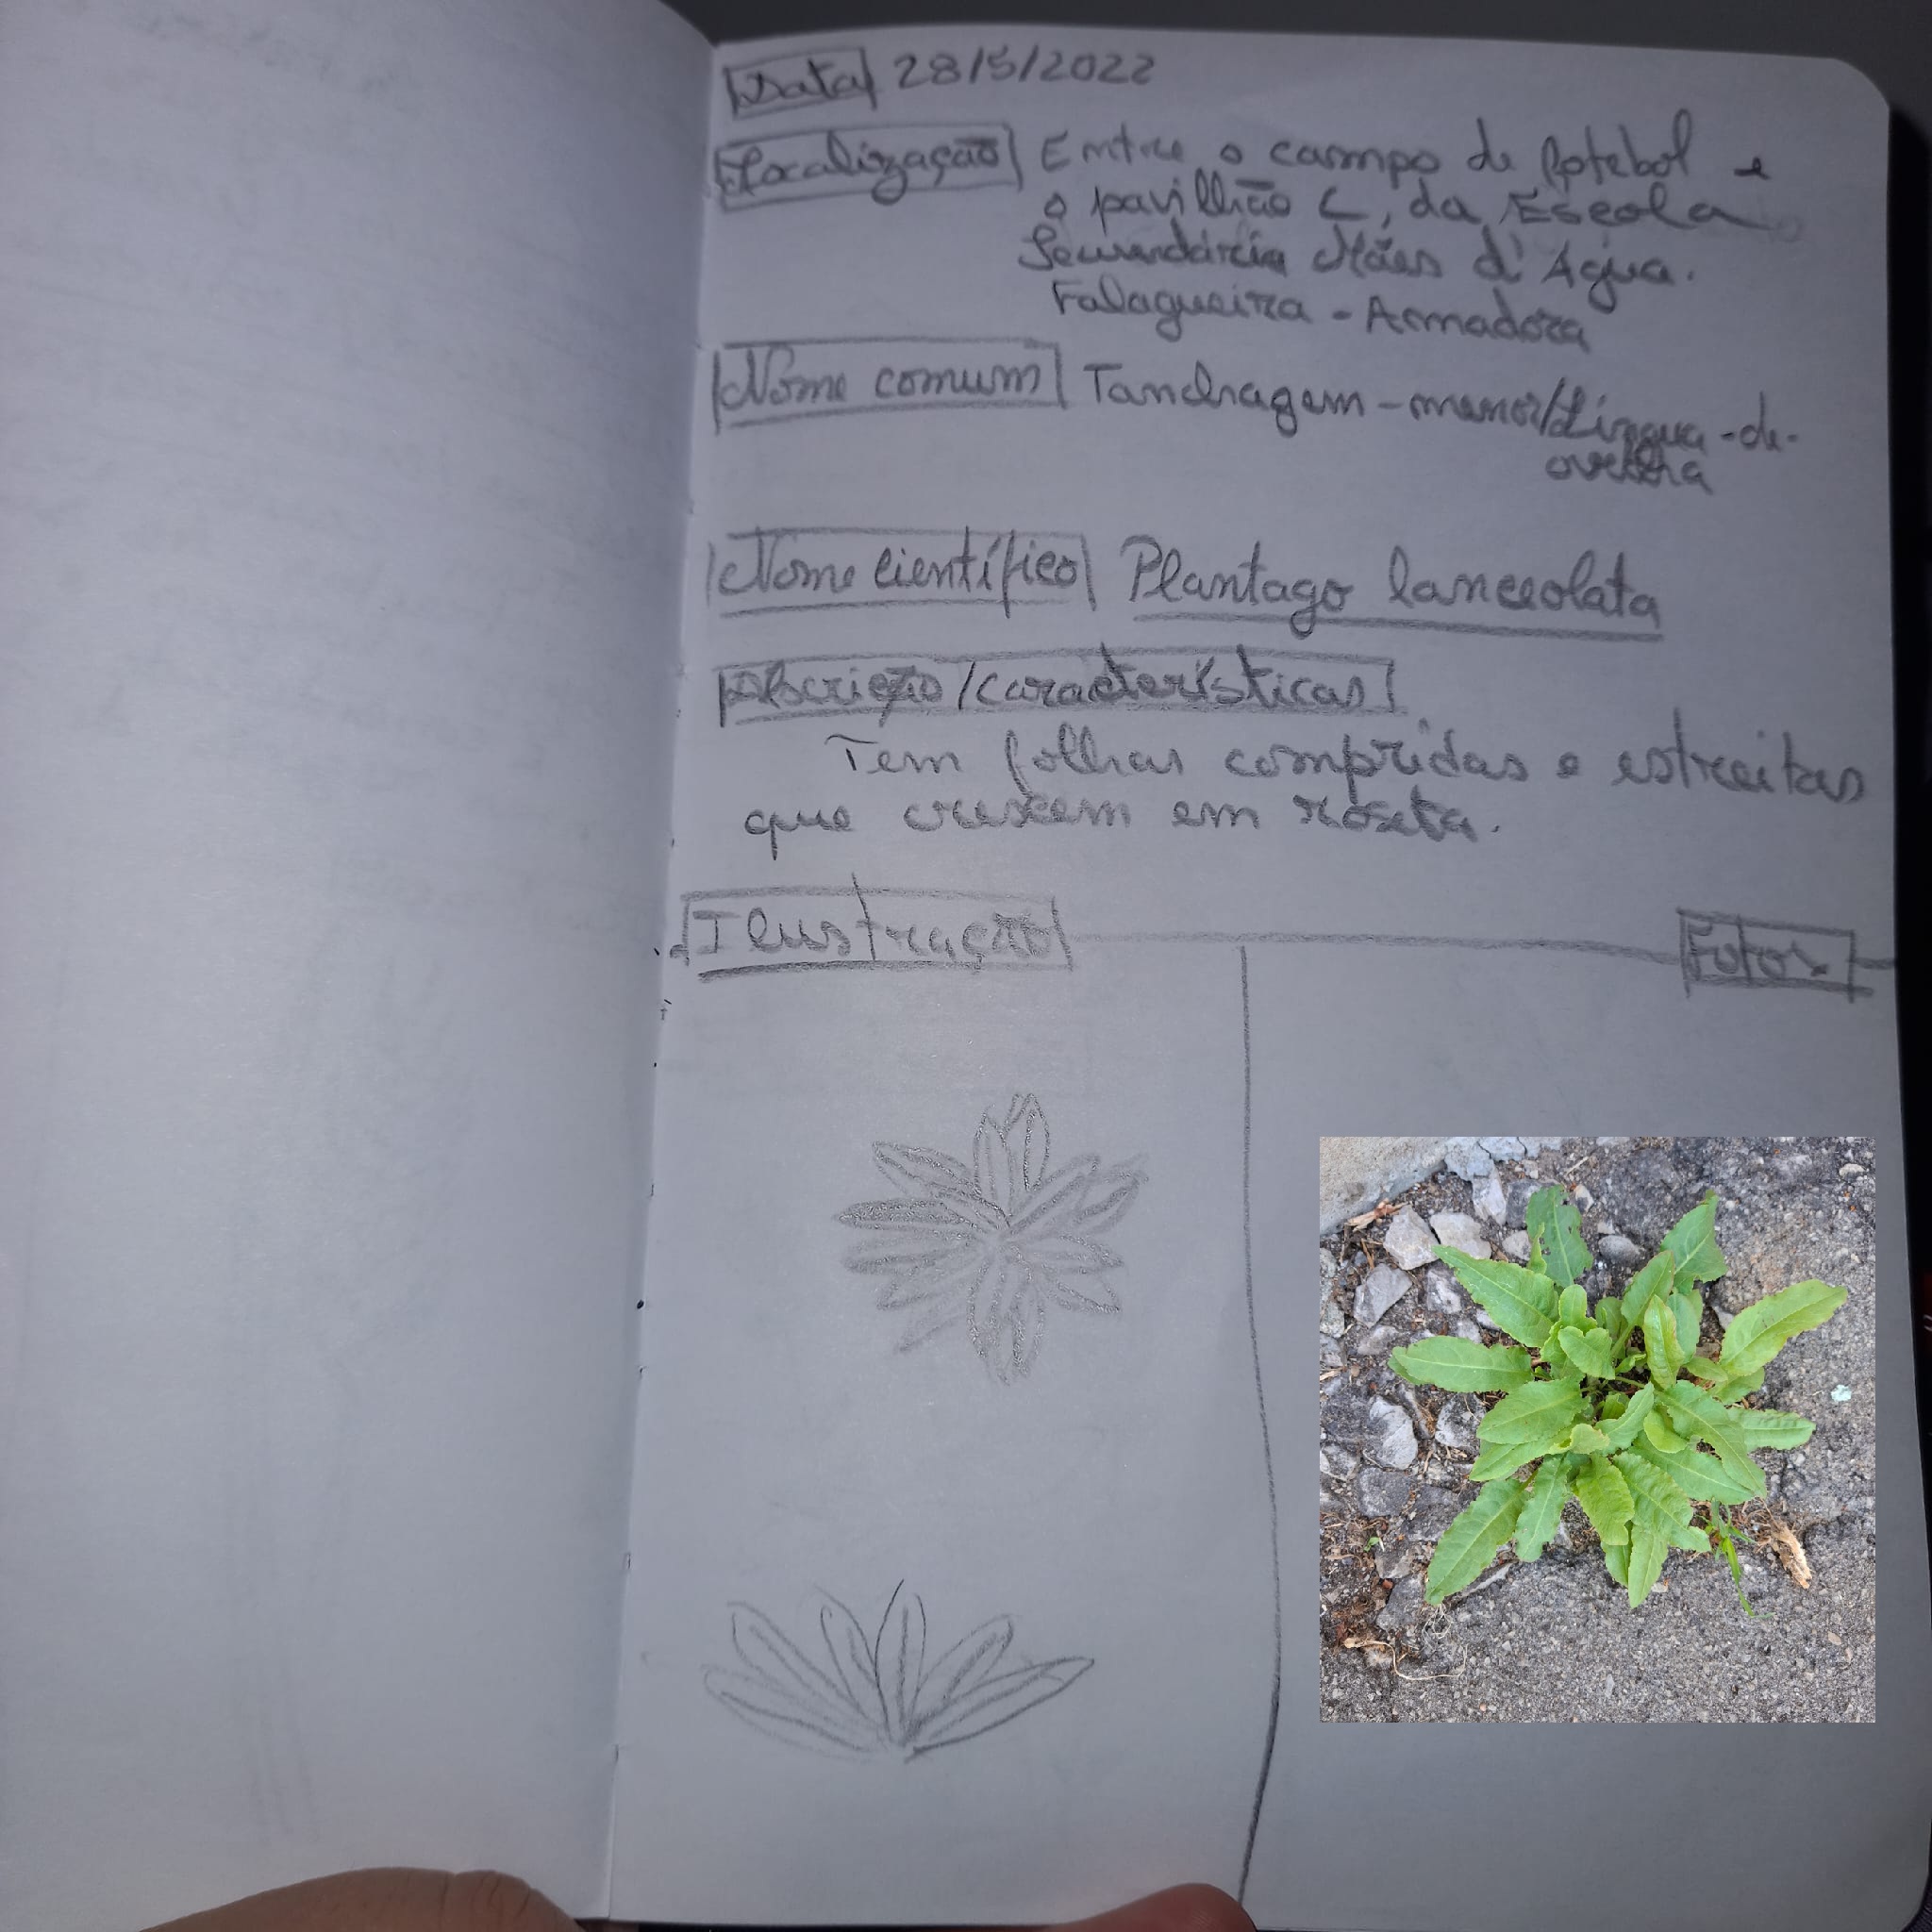 Data 28/5/2022
Localização Entre o campo de fotebol e
o pavilhão C, da Escola
Secundárcia Mães d'Água.
Falagueira - Armadora
Nome comum Tanchagem-menor/Língua-de-
ovelha
Nome científico Plantago lanceolata
Descrição/características
Tem folhas compridas e estreitas
que crescem em roseta.
Ilustração Fotos